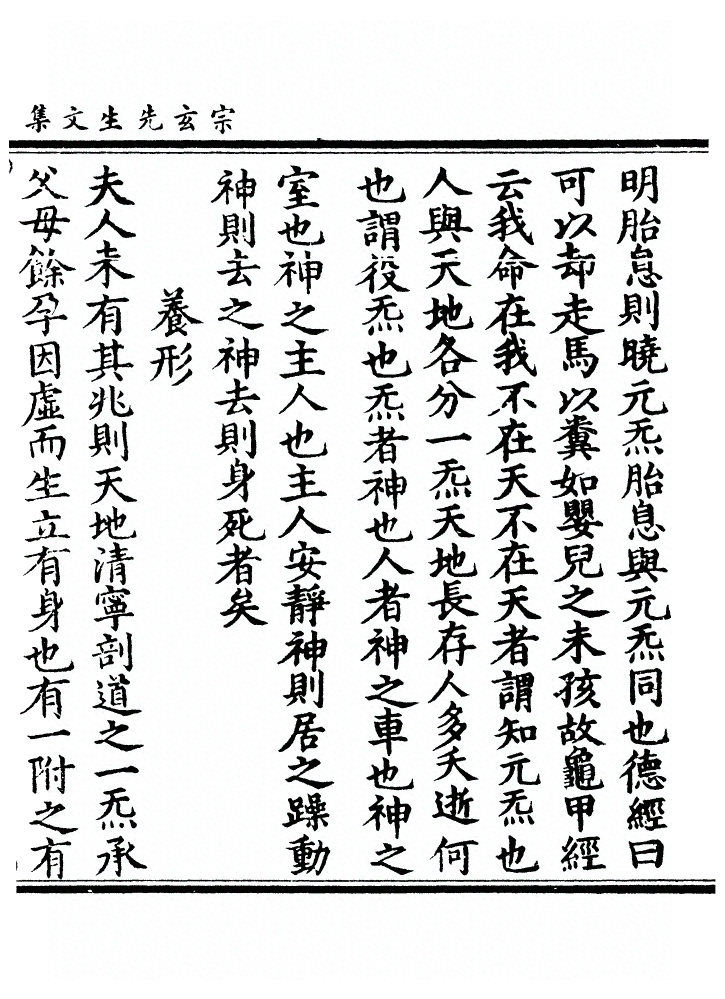 宗玄先生文集
明胎息則曉元炁胎息與元炁同也德經曰
可以却走馬以糞如嬰兒之未孩故龜甲經
云我命在我不在天不在天者謂知元炁也
人與天地各分一炁天地長存人多夭逝何
也謂役炁也炁者神也人者神之車也神之
室也神之主人也主人安靜神則居之躁動
神則去之神去則身死者矣
養形
夫人未有其兆則天地清寧剖道之一炁承
父母餘孕因虛而生立有身也有一附之有